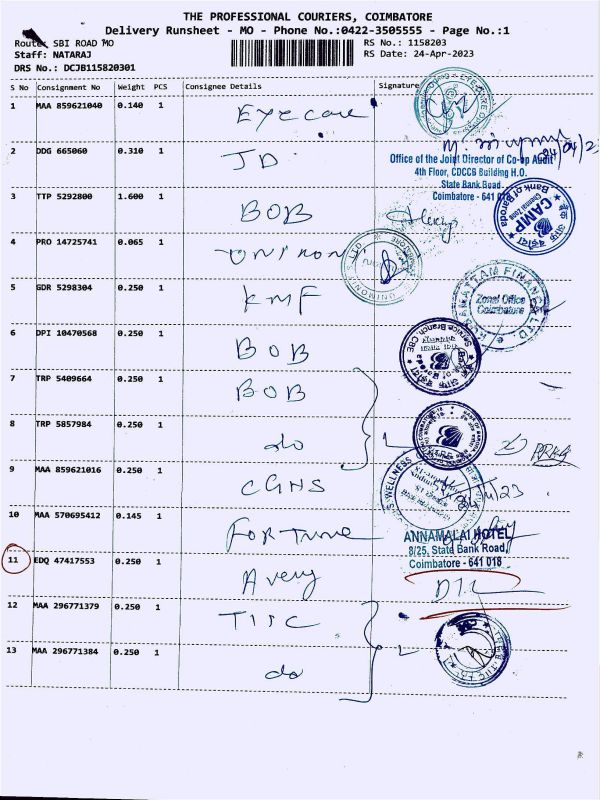 THE PROFESSIONAL COURIERS, COIMBATORE
Delivery Runsheet - MO - Phone No.:0422-3505555 - Page No.:1
Route: SBI ROAD MO
RS No.: 1158203
Staff: NATARAJ
RS Date: 24-Apr-2023
DRS No.: DCJB115820301
S No Consignment No Weight PCS Consignee Details Signature
1 MAA 859621040 0.140 1 Eye care
2 DDG 665060 0.310 1 JD
Office of the Joint Director of Co-op Audit
4th Floor, CDCCG Building H.O.
State Bank Road
Coimbatore - 641 018
3 TTP 5292800 1.600 1 BOB
Bank of Baroda
CAMP
4 PRO 14725741 0.065 1
5 GDR 5298304 0.250 1 KMF
Zonal Office
Coimbatore
6 DPI 10470568 0.250 1 BOB
Service Branch, CBE
7 TRP 5409664 0.250 1 BOB
8 TRP 5857984 0.250 1 do
9 MAA 859621016 0.250 1 CGHS
WELLNESS
10 MAA 570695412 0.145 1 Fortune
ANNAMALAI HOTEL
8/25, State Bank Road,
Coimbatore - 641 018
11 EDQ 47417553 0.250 1 Avery
12 MAA 296771379 0.250 1 TIIC
13 MAA 296771384 0.250 1 do